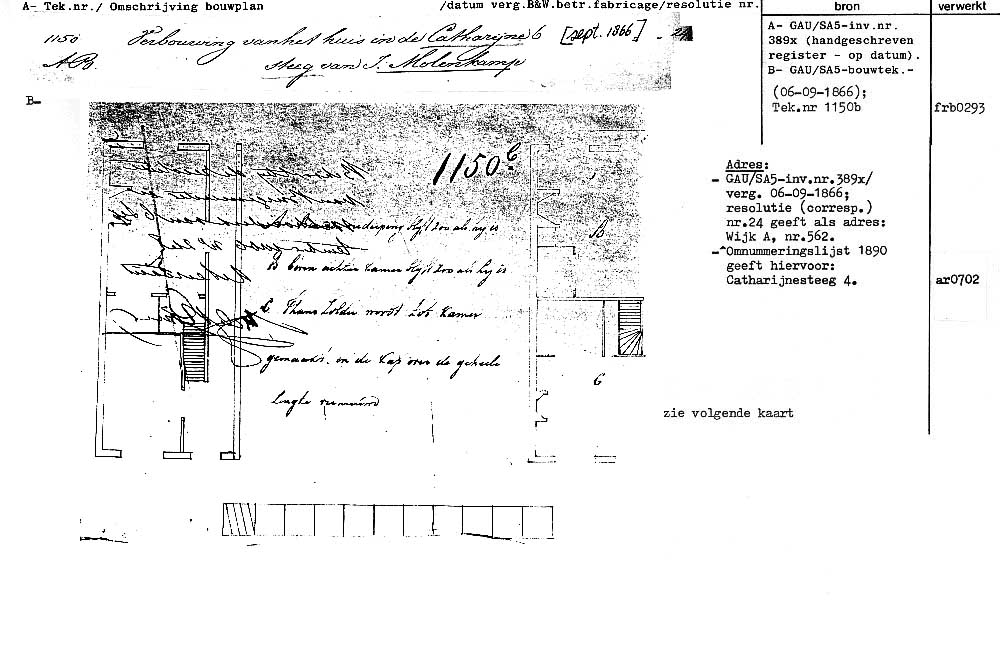 A- Tek.nr./ Omschrijving bouwplan /datum verg.B&W.betr.fabricage/resolutie nr.
bron
verwerkt
1150 Verbouwing van het huis in de Catharijne 6 [sept. 1866] - 24
AB. steeg van J. Molenkamp
A- GAU/SA5-inv.nr.
389x (handgeschreven
register - op datum).
B- GAU/SA5-bouwtek.-
(06-09-1866);
Tek.nr 1150b
frb0293
B-
1150 b.
Adres:
- GAU/SA5-inv.nr.389x/
verg. 06-09-1866;
resolutie (corresp.)
nr.24 geeft als adres:
Wijk A, nr.562.
- Omnummeringslijst 1890
geeft hiervoor:
Catharijnesteeg 4.
ar0702
verdieping blijft zoo als hij is
B boven achter Kamer blijft zoo als hij is
C Thans Zolder wordt tot Kamer
gemaakt. en de Kap over de geheele
Lengte vernieuwd
B
C
zie volgende kaart